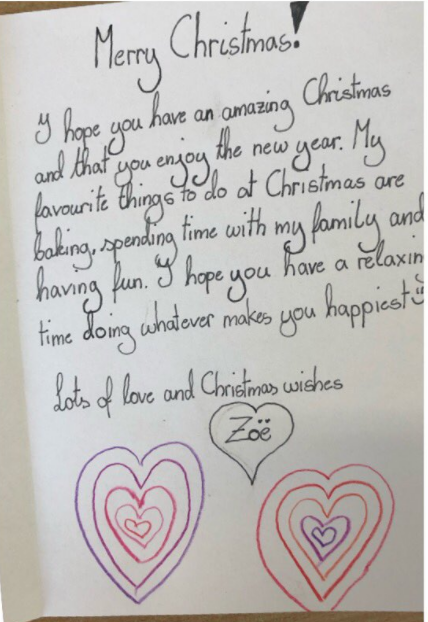 Merry Christmas!
I hope you have an amazing Christmas
and that you enjoy the new year. My
favourite things to do at Christmas are
baking, spending time with my family and
having fun. I hope you have a relaxin
time doing whatever makes you happiest!
Lots of love and Christmas wishes
Zoë